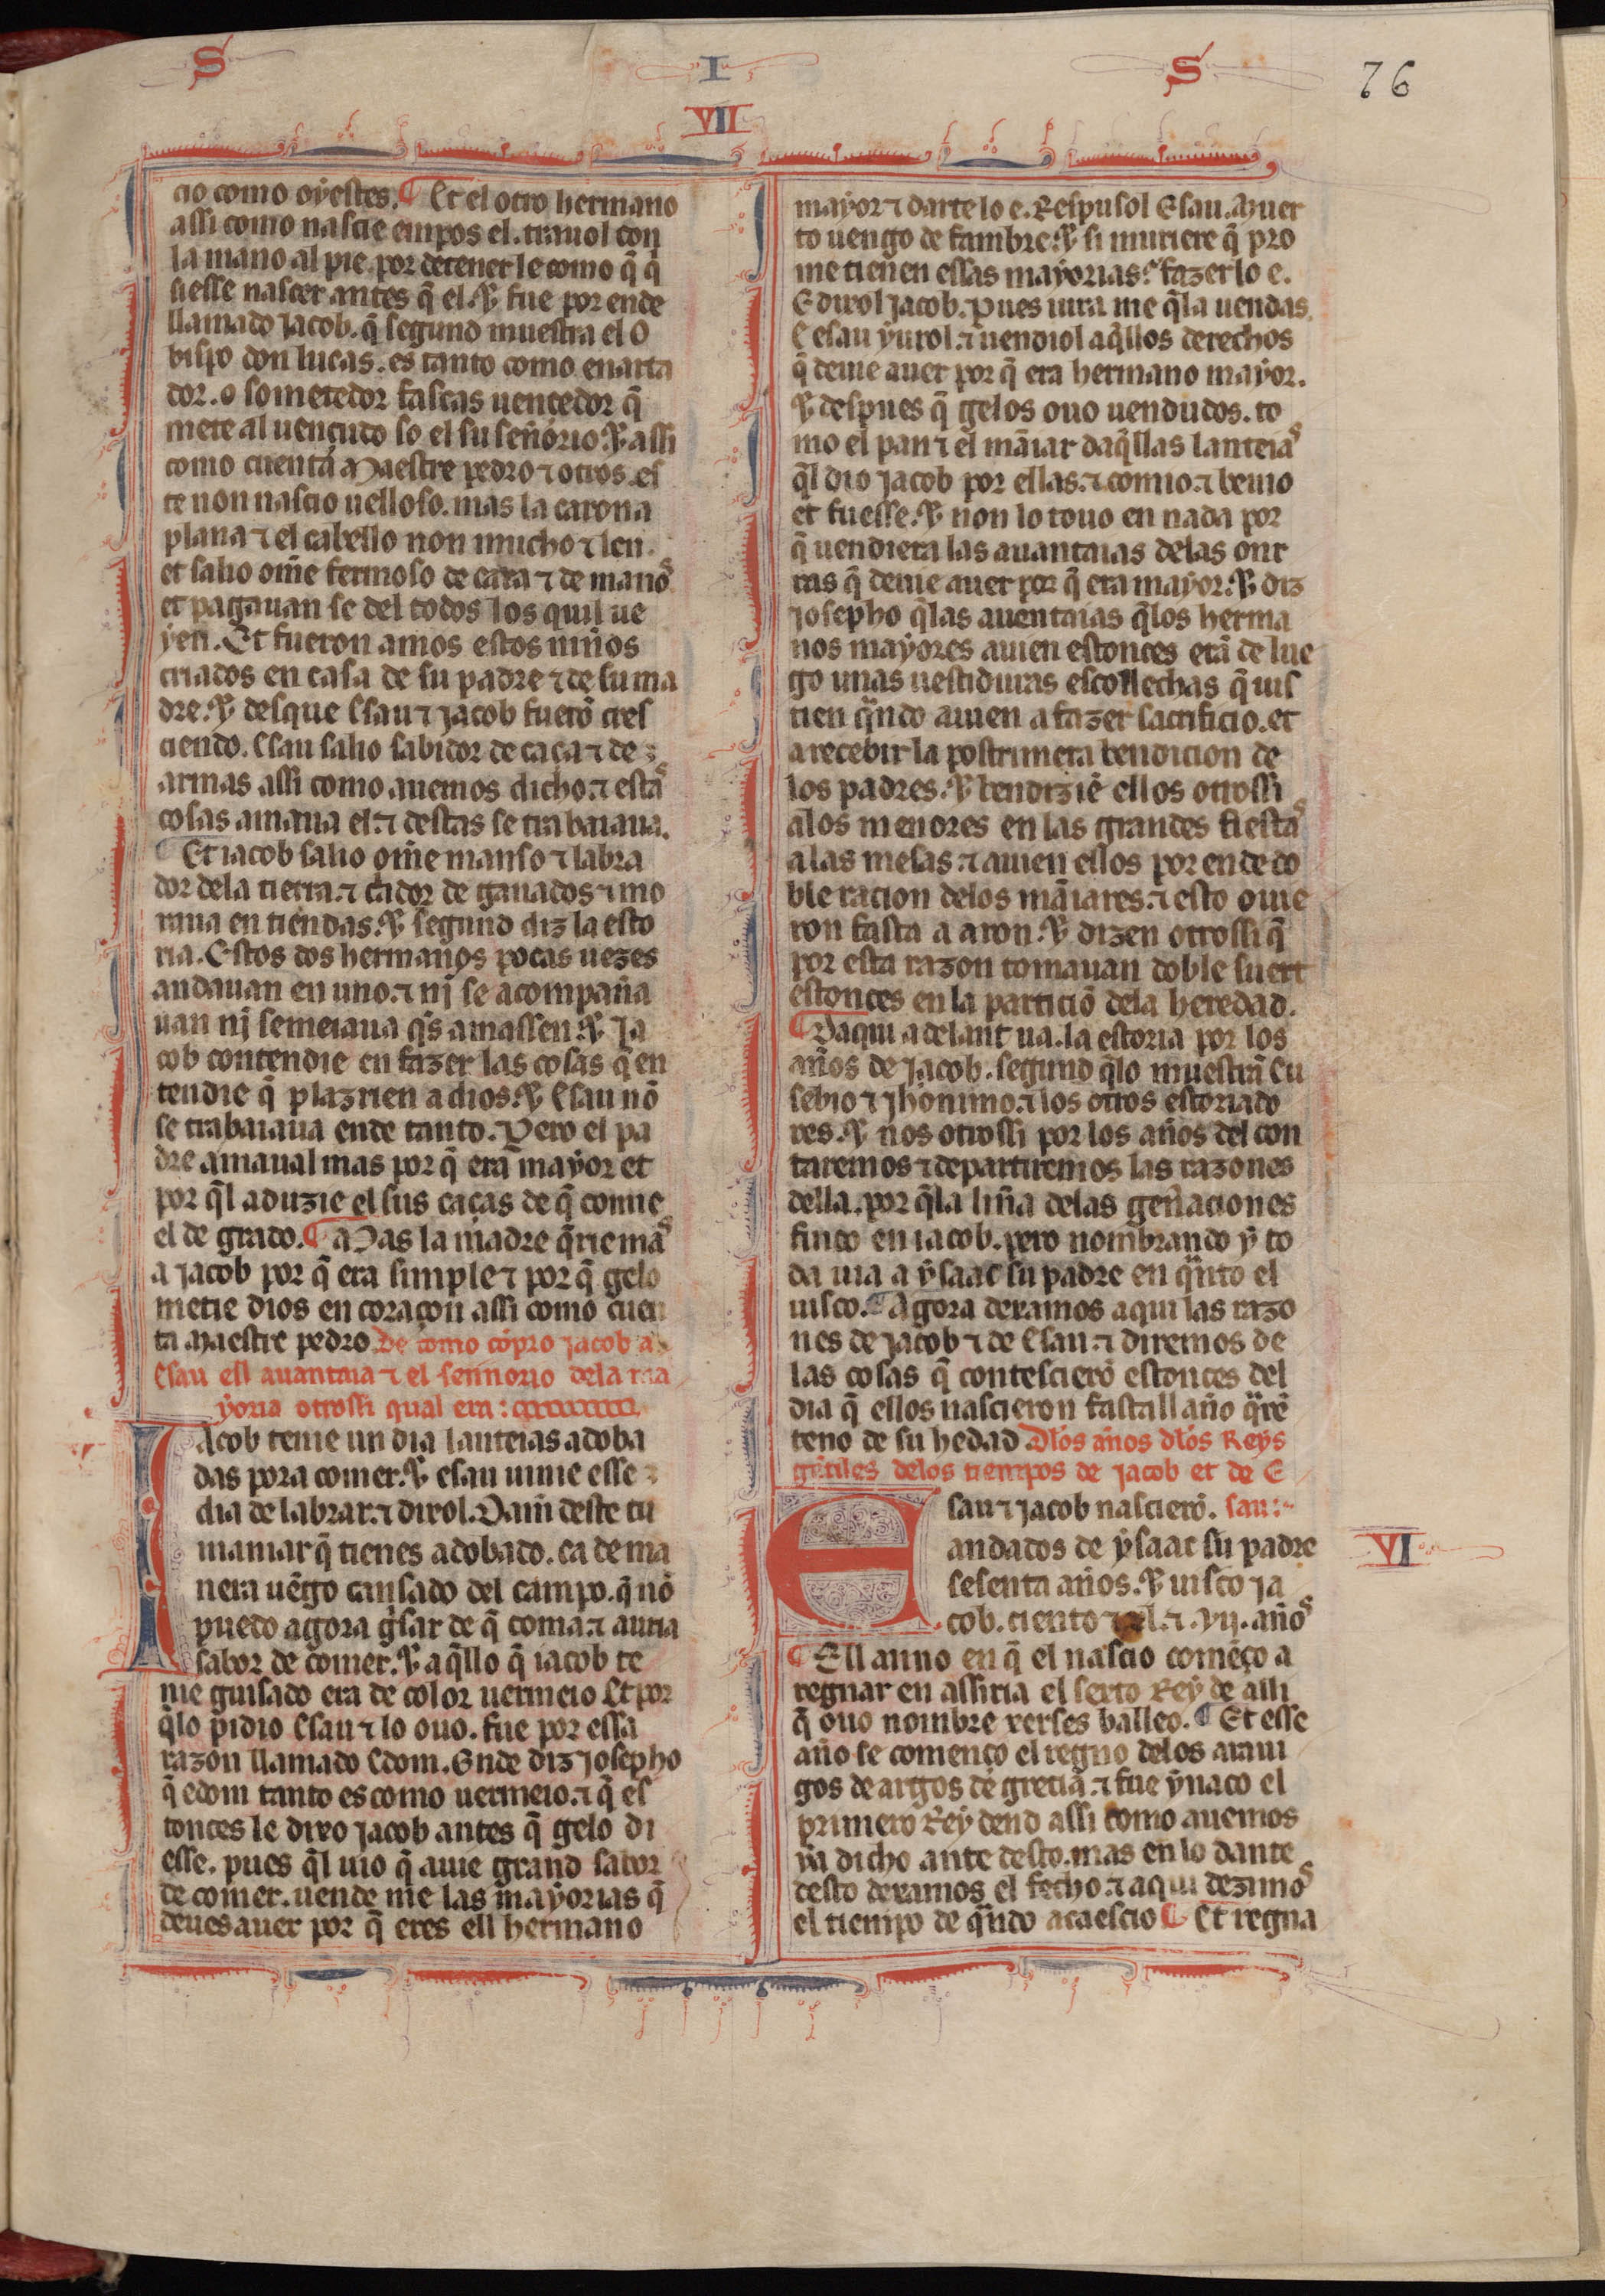 S I S 76
VII
cio como oyestes. ¶ Et el otro hermano
assi como nascie empos el. trauol con
la mano al pie. por detener le como q̄ q̄
siesse nascer antes q̄ el. ⁊ fue por ende
llamado Jacob. q̄ segund muestra el O
bispo don lucas. es tanto como enarta
dor. o sometedor fascas uencedor q̄
mete al uençudo so el su señorio. ⁊ assi
como cuenta Maestre pedro ⁊ otros. es
te non nascio uelloso. mas la carona
plana ⁊ el cabello non mucho ⁊ len.
et salio om̄e fermoso de cara ⁊ de manos
et pagauan se del todos los quil ue
yen. Et fueron amos estos niños
criados en casa de su padre ⁊ de su ma
dre. ⁊ desque Esau ⁊ Jacob fuerō cres
ciendo. Esau salio sabidor de caça ⁊ de
armas assi como auemos dicho. ⁊ estas
cosas amaua el. ⁊ destas se trabaiaua.
¶ Et iacob salio om̄e manso ⁊ labra
dor dela tierra. ⁊ c̄ador de ganados ⁊ mo
raua en tiendas. ⁊ segund diz la esto
ria. Estos dos hermanos pocas uezes
andauan en uno. ⁊ nj se acompaña
uan nj semeiaua q̄s amassen. ⁊ Ja
cob contendie en fazer las cosas q̄ en
tendie q̄ plazrien a dios. ⁊ Esau nō
se trabaiaua ende tanto. Pero el pa
dre amaual mas por q̄ era mayor et
por q̄l aduzie el sus caças de q̄ comie
el de grado. ¶ Mas la madre q̄rie mas
a Jacob por q̄ era simple ⁊ por q̄ gelo
metie dios en coraçon assi como cuen
ta Maestre pedro. De como cōpro Jacob a
Esau ell auantaia ⁊ el sennorio dela ma
yoria otrossi qual era:
Iacob tenie un dia lanteias adoba
das pora comer. ⁊ esau uinie esse
dia de labrar. ⁊ dixol. Dam̄ deste tu
maniar q̄ tienes adobado. ca de ma
nera uēgo cansado del campo. q̄ nō
puedo agora g̃sar de q̄ coma. ⁊ auria
sabor de comer. ⁊ aq̄llo q̄ iacob te
nie guisado era de color uermeio Et por
q̄lo pidio Esau ⁊ lo ouo. fue por essa
razon llamado Edom. Onde diz Josepho
q̄ edom tanto es como uermeio. ⁊ q̄ es
tonces le dixo Jacob antes q̄ gelo di
esse. pues q̄l uio q̄ auie grand sabor
de comer. uende me las mayorias q̄
deues auer por q̄ eres ell hermano
mayor ⁊ dartelo e. Respusol Esau. Muer
to uengo de fambre. ⁊ si muriere q̄ pro
me tienen essas mayorias? fazerlo e.
E dixol Jacob. Pues iura me q̄la uendas.
E esau yurol. ⁊ uendiol aq̄llos derechos
q̄ deuie auer por q̄ era hermano mayor.
⁊ despues q̄ gelos ouo uendudos. to
mo el pan ⁊ el mā̄iar daq̄llas lanteias
q̄l dio Jacob por ellas. ⁊ comio. ⁊ beuio
et fuesse. ⁊ non lo touo en nada por
q̄ uendiera las auantaias delas onr
ras q̄ deuie auer por q̄ era mayor. ⁊ diz
Josepho q̄las auentaias q̄los herma
nos mayores auien estonces erā de lue
go unas uestiduras escollechas q̄ uis
tien q̄ndo auien a fazer sacrificio. et
a recebir la postrimera bendicion de
los padres. ⁊ bendiziē ellos otrossi
alos menores en las grandes fiestas
a las mesas. ⁊ auien ellos por ende do
ble racion delos māiares. ⁊ esto ouie
ron fasta a aron. ⁊ dizen otrossi q̄
por esta razon tomauan doble suert
estonces en la particiō dela heredad.
¶ Daqui adelant ua. la estoria por los
años de Jacob. segund q̄lo muestrā Eu
sebio ⁊ Jheronimo. ⁊ los otros estoriado
res. ⁊ nos otrossi por los años del con
taremos ⁊ departiremos las razones
della. por q̄la liña delas geñaciones
finco en iacob. pero nombrando y to
da uia a ysaac su padre en q̄nto el
uisco. ¶ Agora dexamos aqui las razo
nes de Jacob ⁊ de Esau. ⁊ diremos de
las cosas q̄ contescierō estonces del
dia q̄ ellos nascieron fastall año q̄re
teno de su hedad. Dlos años dlos Reys
gētiles delos tiempos de Jacob et de E
Esau ⁊ Jacob nascierō. sau:
andados de ysaac su padre VI
sesenta años. ⁊ uisco Ja
cob. ciento ⁊ xl. ⁊ .vij. años
¶ Ell anno en q̄ el nascio comēço a
regnar en assiria el sexto Rey de alli
q̄ ouo nombre xerses balleo. ¶ Et esse
año se començo el regno delos araui
gos de argos de grecia. ⁊ fue ynaco el
primero Rey dend assi como auemos
ya dicho ante desto. mas en lo dante
desto dexamos el fecho. ⁊ aqui dezimos
el tiempo de q̄ndo acaescio ¶ Et regna